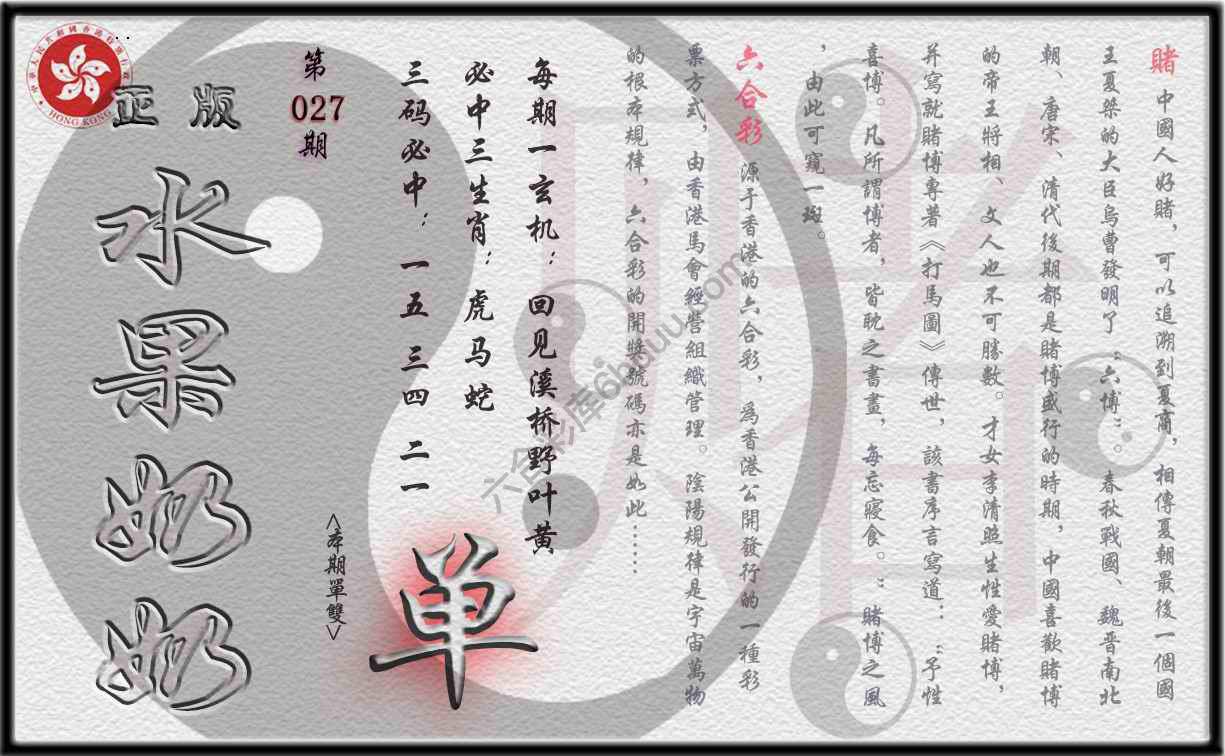 賭 中國人好賭，可以追溯到夏商，相傳夏朝最後一個國
王夏桀的大臣烏曹發明了“六博”。春秋戰國、魏晋南北
朝、唐宋、清代後期都是賭博盛行的時期，中國喜歡賭博
的帝王將相、文人也不可勝數。才女李清照生性愛賭博，
并寫就賭博專著《打馬圖》傳世，該書序言寫道：“予性
喜博。凡所謂博者，皆耽之書畫，每忘寢食。”賭博之風
，由此可窺一斑。
六合彩 源于香港的六合彩，爲香港公開發行的一種彩
票方式，由香港馬會經營組織管理。陰陽規律是宇宙萬物
的根本規律，六合彩的開獎號碼亦是如此……
每期一玄机：回见溪桥野叶黄
必中三生肖：虎马蛇
三码必中：一五 三四 二一
单
<本期單雙>
第
027
期
正版
水果奶奶
HONG KONG
六合彩库6htuuu.com